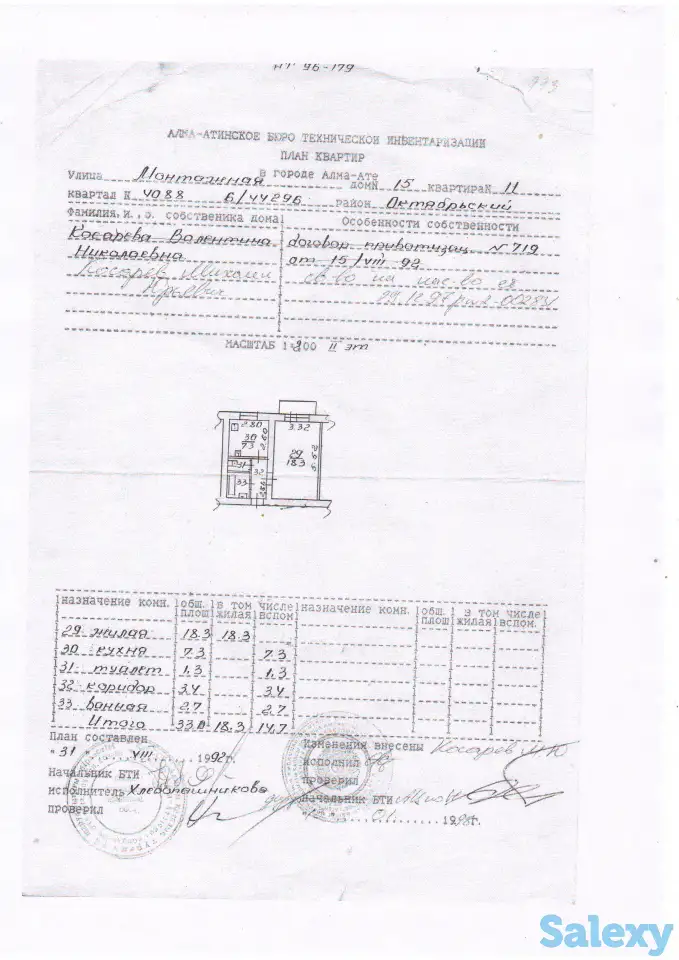 НГ 96-179
АЛМА-АТИНСКОЕ БЮРО ТЕХНИЧЕСКОЙ ИНВЕНТАРИЗАЦИИ
ПЛАН КВАРТИР
в городе Алма-Ате
Улица Монтажная дом№ 15 квартира№ 11
квартал № 4088 6/44296 район Октябрьский
Фамилия, и., о. собственика дома Особенности собственности
Косарева Валентина договор приватизац. N 719
Николаевна от 15/VIII 92
Косарев Михаил св-во на нас-во ея
Юрьевич
МАСШТАБ 1:200 II эт
2.80 3.32
30 7.3 2.60
29 18.3
31 32
33
назначение комн. общ. площ в том числе жилая вспом. назначение комн. общ. площ в том числе жилая вспом.
29 жилая 18.3 18.3
30 кухня 7.3 7.3
31 туалет 1.3 1.3
32 коридор 3.4 3.4
33 ванная 2.7 2.7
Итого 33.0 18.3 14.7
План составлен Изменения внесены Косарев М Ю
"31 VIII 1992г. исполнил
Начальник БТИ проверил
исполнитель Хлебопашникова Начальник БТИ
проверил 01 1998г.
Salexy